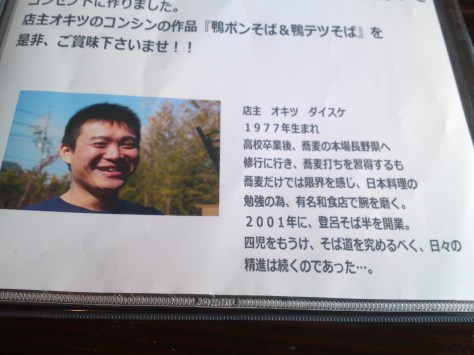 コンセプトに作りました。
店主オキツのコンシンの作品『鴨ポンそば＆鴨テツそば』を
是非、ご賞味下さいませ！！
店主　オキツ　ダイスケ
１９７７年生まれ
高校卒業後、蕎麦の本場長野県へ
修行に行き、蕎麦打ちを習得するも
蕎麦だけでは限界を感じ、日本料理の
勉強の為、有名和食店で腕を磨く。
２００１年に、登呂そば半を開業。
四児をもうけ、そば道を究めるべく、日々の
精進は続くのであった…。